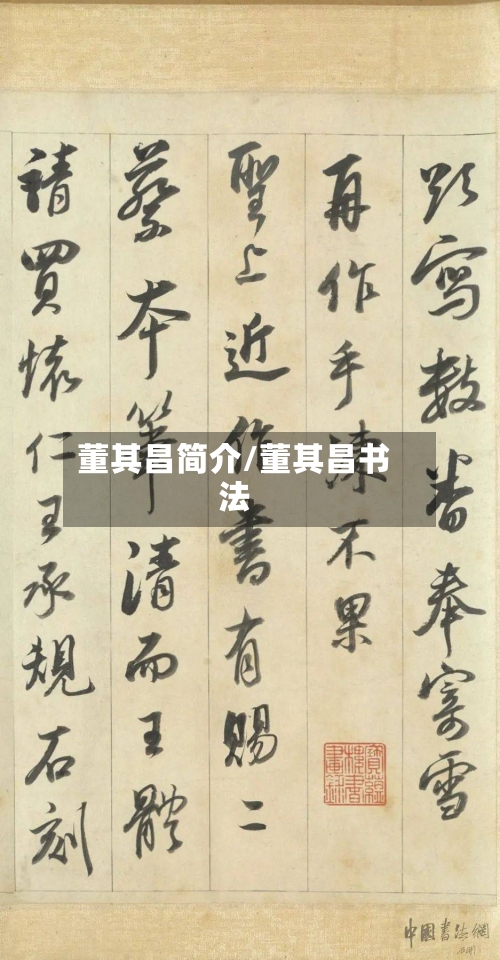 寫數番奉寄雪
再作手凍不果
聖上近作書有賜二
蔡本筆清而王體
請買懷仁王承規石刻
董其昌简介/董其昌书
法
寶蘊
樓書
畫錄
中國書法網